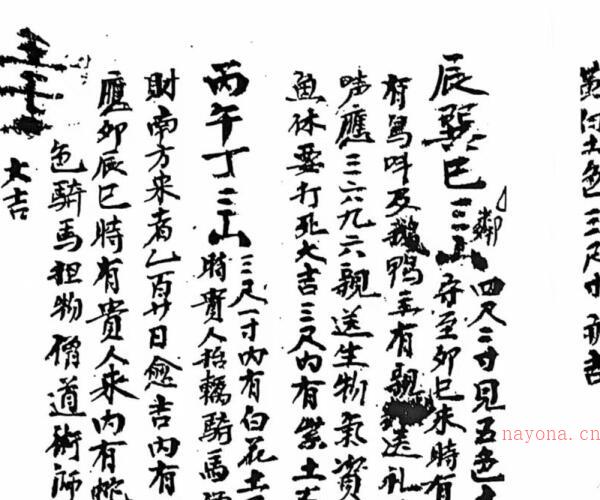 黃白土色三尺寸
辰巽巳三山
四尺二寸見五色
鄰守至卯巳未時有
有鳥叫及鵝鴨至有親送礼
啼應三六九六親送生物氣資
魚休要打死大吉三尺內有紫土
丙午丁三山
三尺一寸內有白花土
時貴人抬轎騎馬
財南方來者乙百廿日愈吉內有
應卯辰巳時有貴人來內有
色騎馬担物僧道術師
大吉
nayona.cn